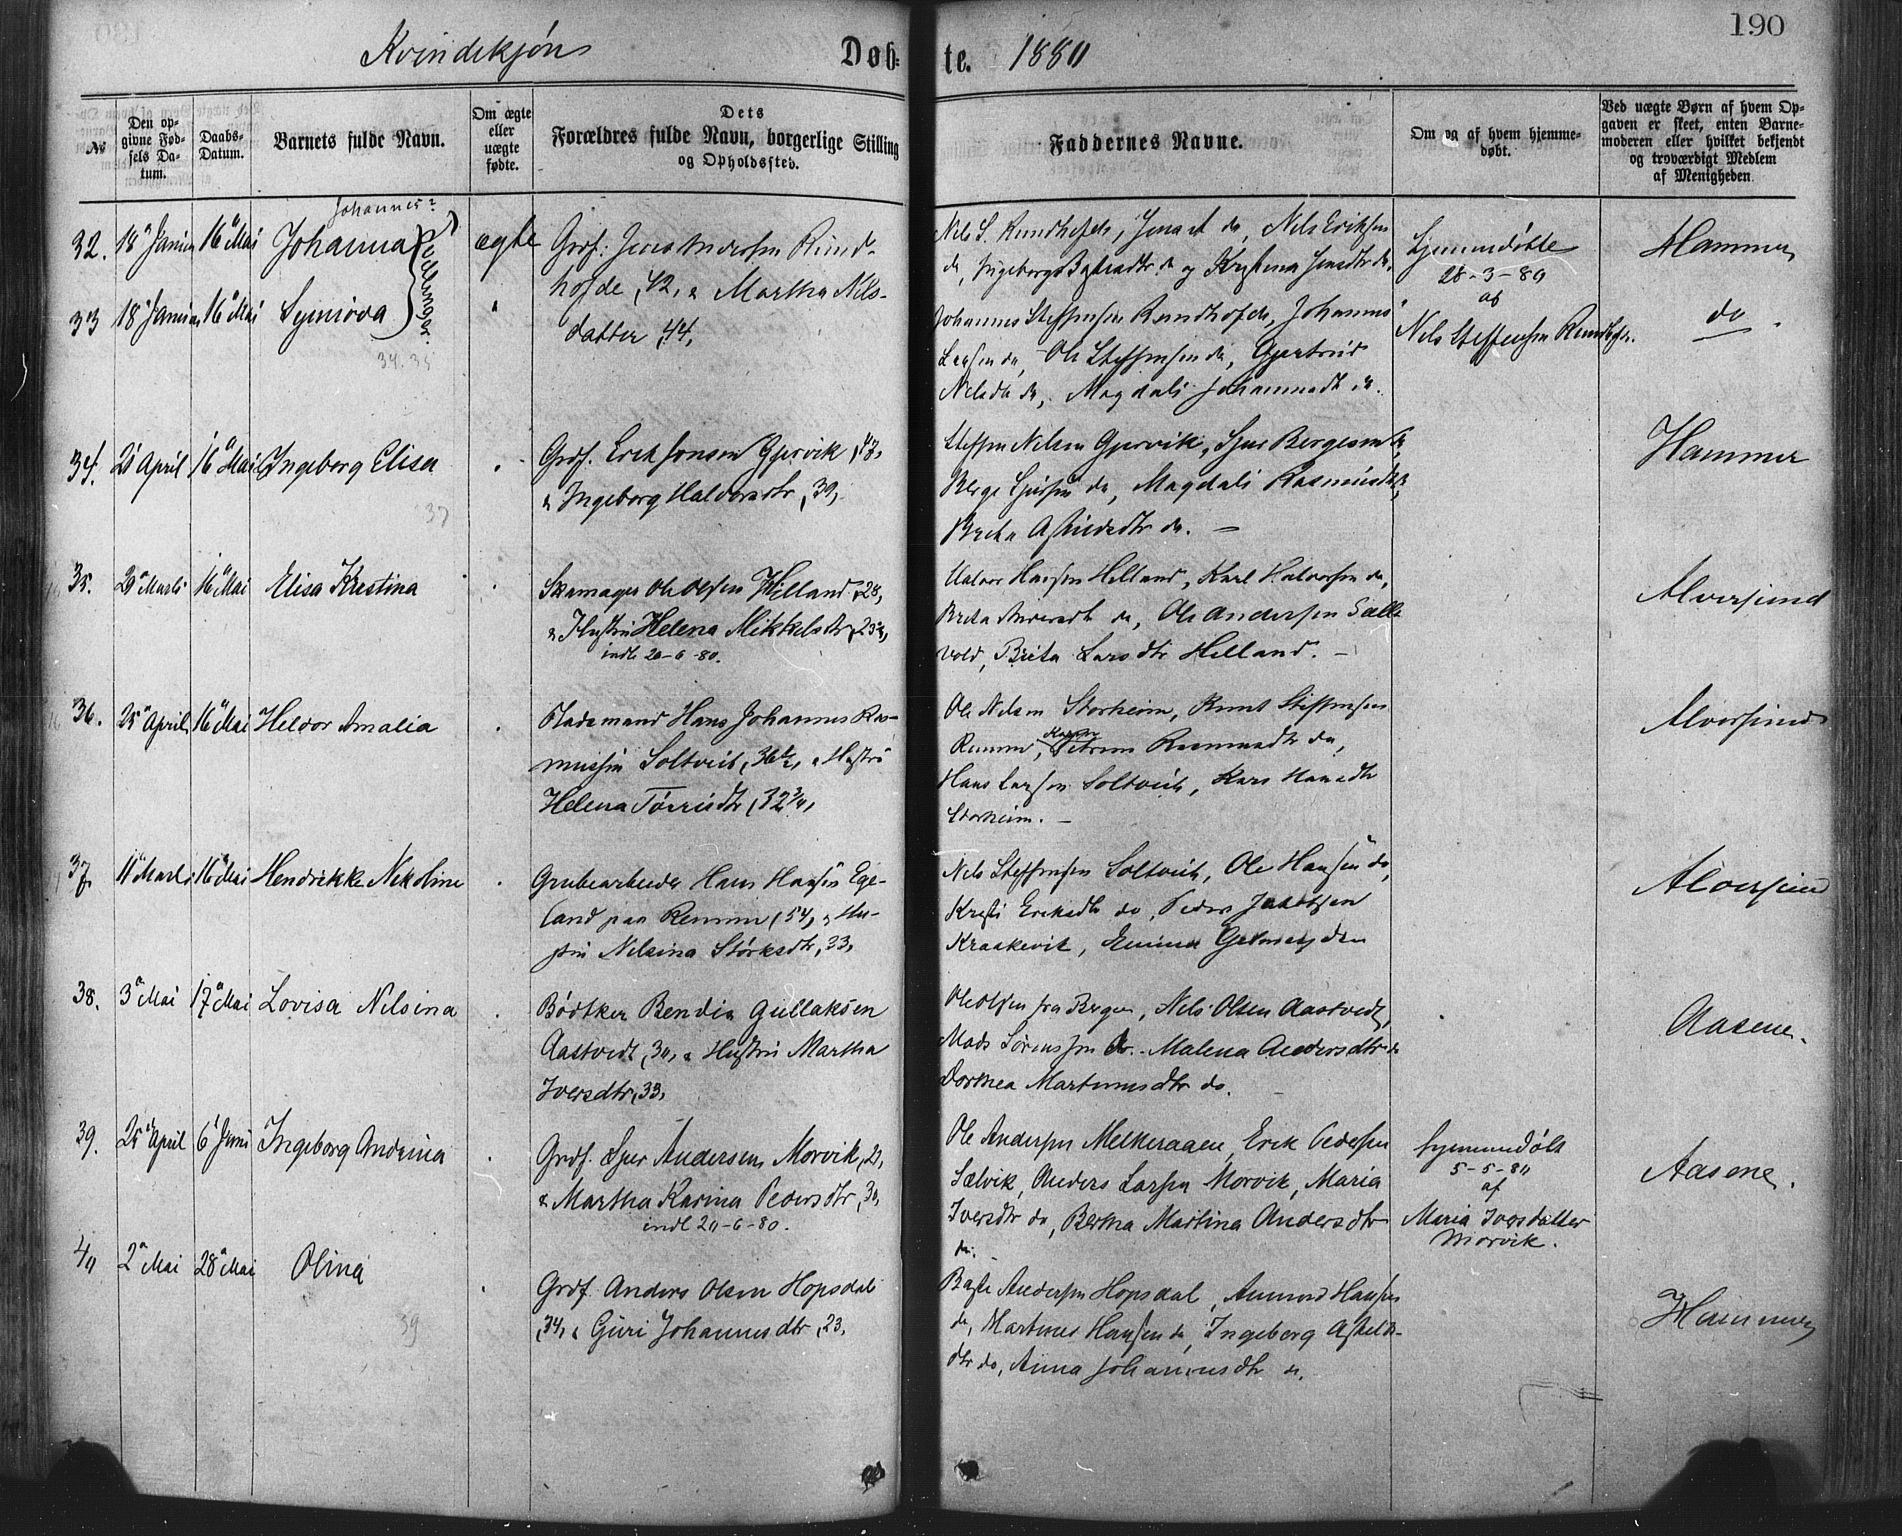 190
Kvindekjøn Døbte. 1880
№
Den opgivne Fødsels Datum.
Daabs-Datum.
Barnets fulde Navn.
Om ægte eller uægte fødte.
Dets Forældres fulde Navn, borgerlige Stilling og Opholdssted.
Faddernes Navne.
Om og af hvem hjemmedøbt.
Ved uægte Børn af hvem Opgaven er skeet, enten Barnemoderen eller hvilket bekjendt og troværdigt Medlem af Menigheden.
Johannes?
32. 18 Januar 16 Mai Johanna ægte
Tvillinger.
33 18 Januar 16 Mai Synnøva "
34. 35
Grdf. Jens Andersen Rund-
hofde, 42, & Martha Nils-
datter, 44,
Nils S. Rundhofde, Nils Eriksen
do, Ingeborg do og
Johannes Steffensen Rundhofde, Johannes
Larsen do, Ole Steffensen do, Gjertrud
Nilsdtr do, Magdali Johannesdtr do.
Hjemmedøbte
28-3-80
af
Nils Steffensen Rundhofde.
Hammer
do
34. 21 April 16 Mai Ingeborg Elisa
37
Grdf. Erik Jonsen Gjervik, 47,
& Ingeborg Halvorsdtr, 39,
Steffen Nilsen Gjervik, Sjur Bergesen do
Berge Sjursen do, Magdali Rasmusdtr do
Brita do. —
Hammer
35. 29 Marts 16 Mai Elisa Kristina
Skomager Ole Olsen Helland, 28,
& Hustru Helena Mikkelsdtr, 23½,
indl 20-6-80.
Halvor Hansen Helland, Karl Halvorsen do,
Brita do, Ole Andersen Sælle-
vold, Brita Larsdtr Helland. —
Alversund
36. 25 April 16 Mai Helvor Amalia
Pladsmand Hans Johannes Ras-
mussen Soltveit, 36½, & Hustru
Helena Tørrisdtr, 32¾,
Ole Nilsen Storheim, Knut Steffensen
do,
Hans Larsen Soltveit, Kari Hansdtr
Storheim. —
Alversund
37. 11 Marts 16 Mai Hendrikke Nikoline
Grubearbeider Hans Hansen Ege-
land paa 54, & Hu-
stru Nilsina Størksdtr, 33,
Nils Steffensen Soltveit, Ole Hansen do,
Kristi Eriksdtr do, Peder Jakobsen
Kraakevik, Emma
Alversund
38. 3 Mai 17 Mai Lovisa Nilsina
Bødtker Bendix Gullaksen
Aastvedt, 30, & Hustru Martha
Iversdtr, 33,
Ole Olsen fra Bergen, Nils Olsen Aastvedt,
Mads Sørensen do. Malena Andersdtr do
Dorthea Martinusdtr do.
Aasene.
39. 25 April 6 Juni Ingeborg Andrina
Grdf. Sjur Andersen Morvik, 21,
& Martha Karina Pedersdtr, 30,
indl 20-6-80.
Ole Andersen Melkeraaen, Erik Pedersen
Sælvik, Anders Larsen Morvik, Maria
Iversdtr do, Bertha Martina Andersdtr
do.
Hjemmedøbt
5-5-80
af
Maria Iversdatter
Morvik.
Aasene.
40 2 Mai 28 Mai Olina
39
Grdf. Anders Olsen Hopsdal
34, & Guri Johannesdtr, 23.
Andersen Hopsdal, Amund Hansen
do, Martines Hansen do, Ingeborg
dtr do, Anna Johannesdtr do.
Hammer